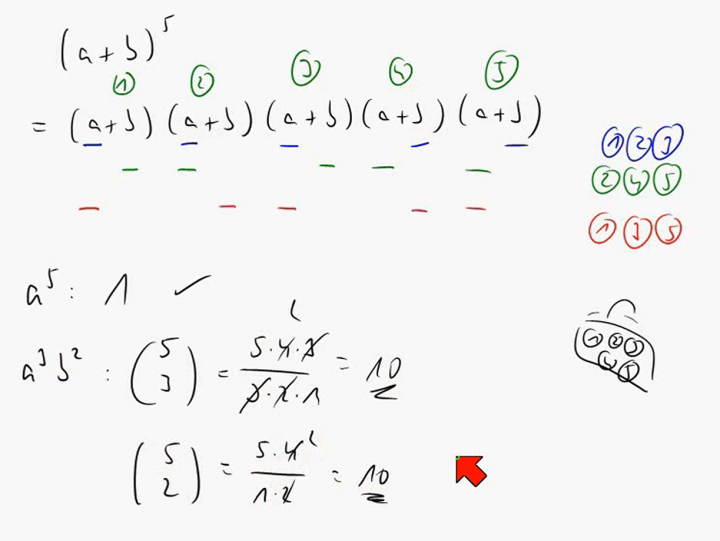 (a+b)^5
① ② ③ ④ ⑤
= (a+b) (a+b) (a+b) (a+b) (a+b)
① ② ③
② ④ ⑤
① ③ ⑤
a^5 : 1 ✓
① ② ③
④ ⑤
a^3 b^2 : (5 3) = 5·4·3 / 3·2·1 = 10
(5 2) = 5·4 / 1·2 = 10